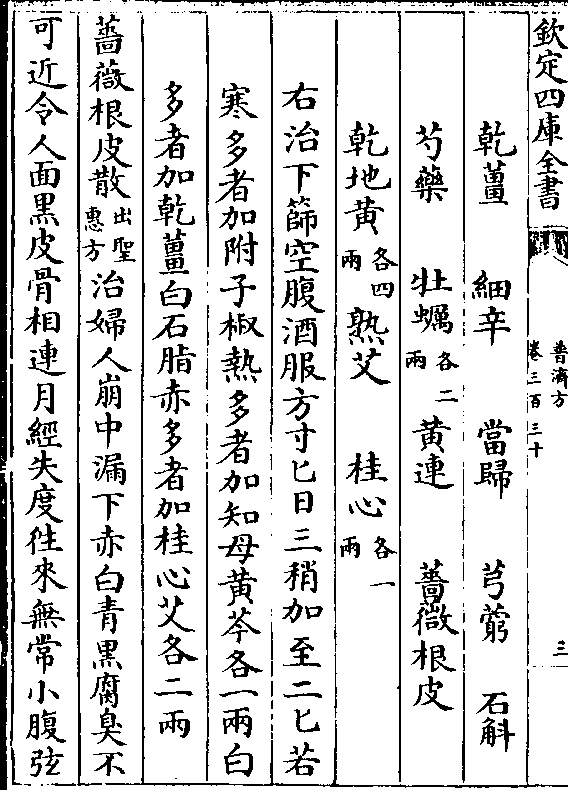 欽定四庫全書
普濟方
卷三百三十
三
乾薑 細辛 當歸 芎藭 石斛
芍藥 牡蠣各二兩 黄連 薔薇根皮
乾地黄各四兩 熟艾 桂心各一兩
右治下篩空腹酒服方寸匕日三稍加至二匕若
寒多者加附子椒熱多者加知母黄芩各一兩白
多者加乾薑白石脂赤多者加桂心艾各二兩
薔薇根皮散出聖惠方治婦人崩中漏下赤白青黒腐臭不
可近令人面黒皮骨相連月經失度徃來無常小腹弦